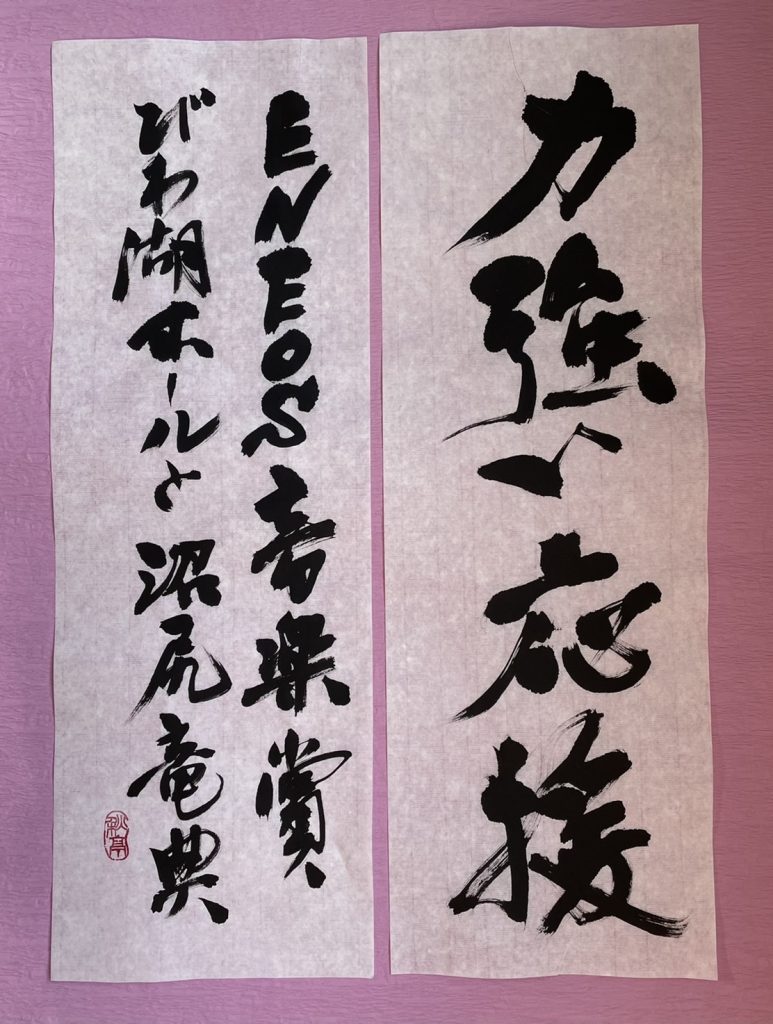 力強い応援
ENEOS音楽賞
びわ湖ホールと沼尻竜典
秋亭